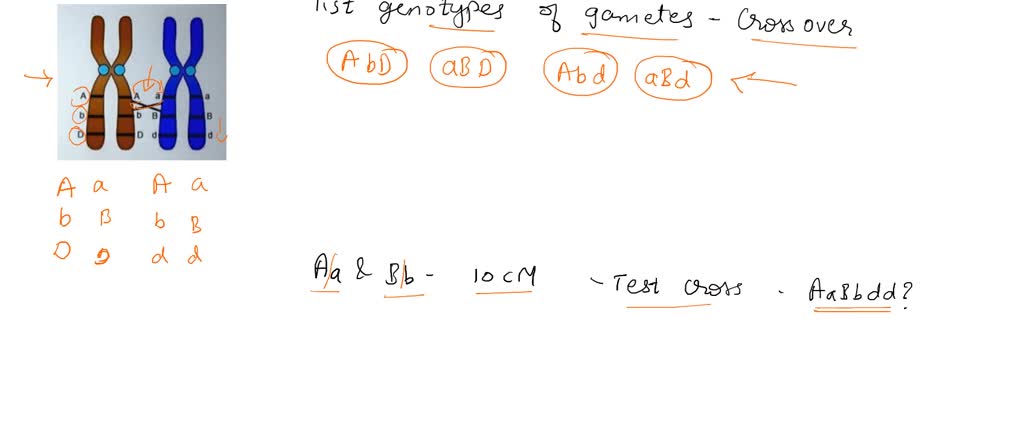 list genotypes of gametes - Cross over
AbD aBD Abd aBd
A A a a
b b B B
D D d d
A a A a
b B b B
D D d d
A/a & B/b - 10 cM - Test cross - AaBbdd?